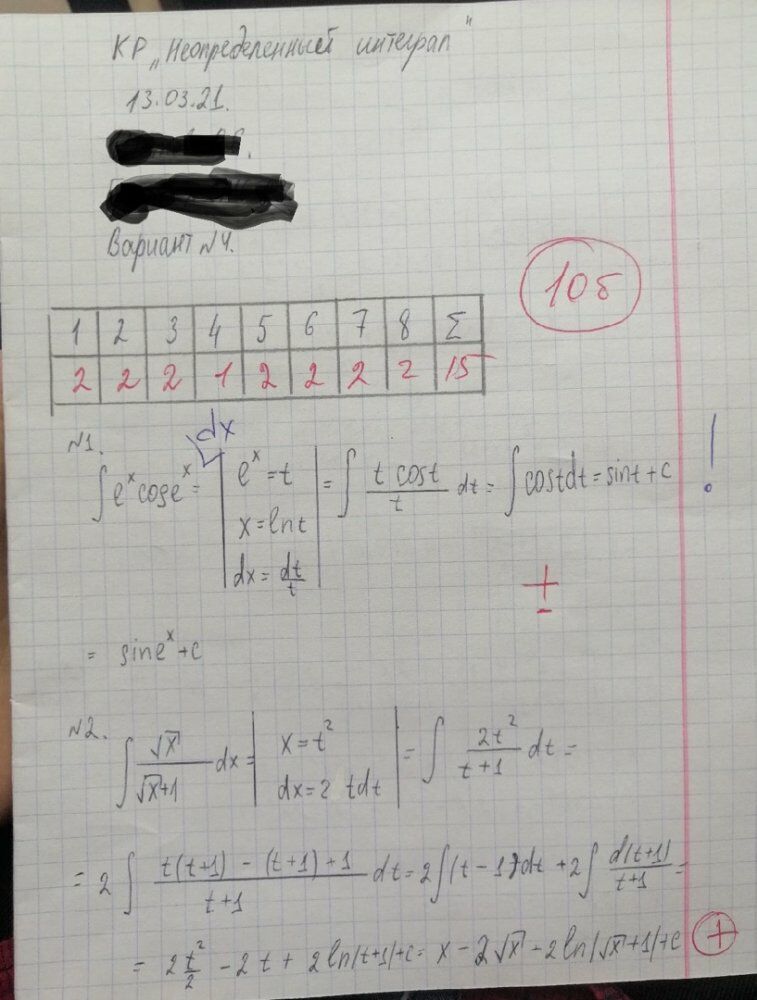 КР „Неопределенный интеграл"
13.03.21.
Вариант №4.
10б
1 2 3 4 5 6 7 8 Σ
2 2 2 1 2 2 2 2 15
№1.
dx
∫ e^x cos e^x = | e^x = t  x = ln t  dx = dt/t | = ∫ (t cos t)/t dt = ∫ cos t dt = sin t + c !
±
= sin e^x + c
№2.
∫ √x/(√x+1) dx = | x = t^2  dx = 2 t dt | = ∫ 2t^2/(t+1) dt =
= 2 ∫ (t(t+1) - (t+1) + 1)/(t+1) dt = 2 ∫ (t - 1) dt + 2 ∫ d(t+1)/(t+1) =
= 2 t^2/2 - 2t + 2 ln|t+1| + c = x - 2√x - 2 ln|√x+1| + c +